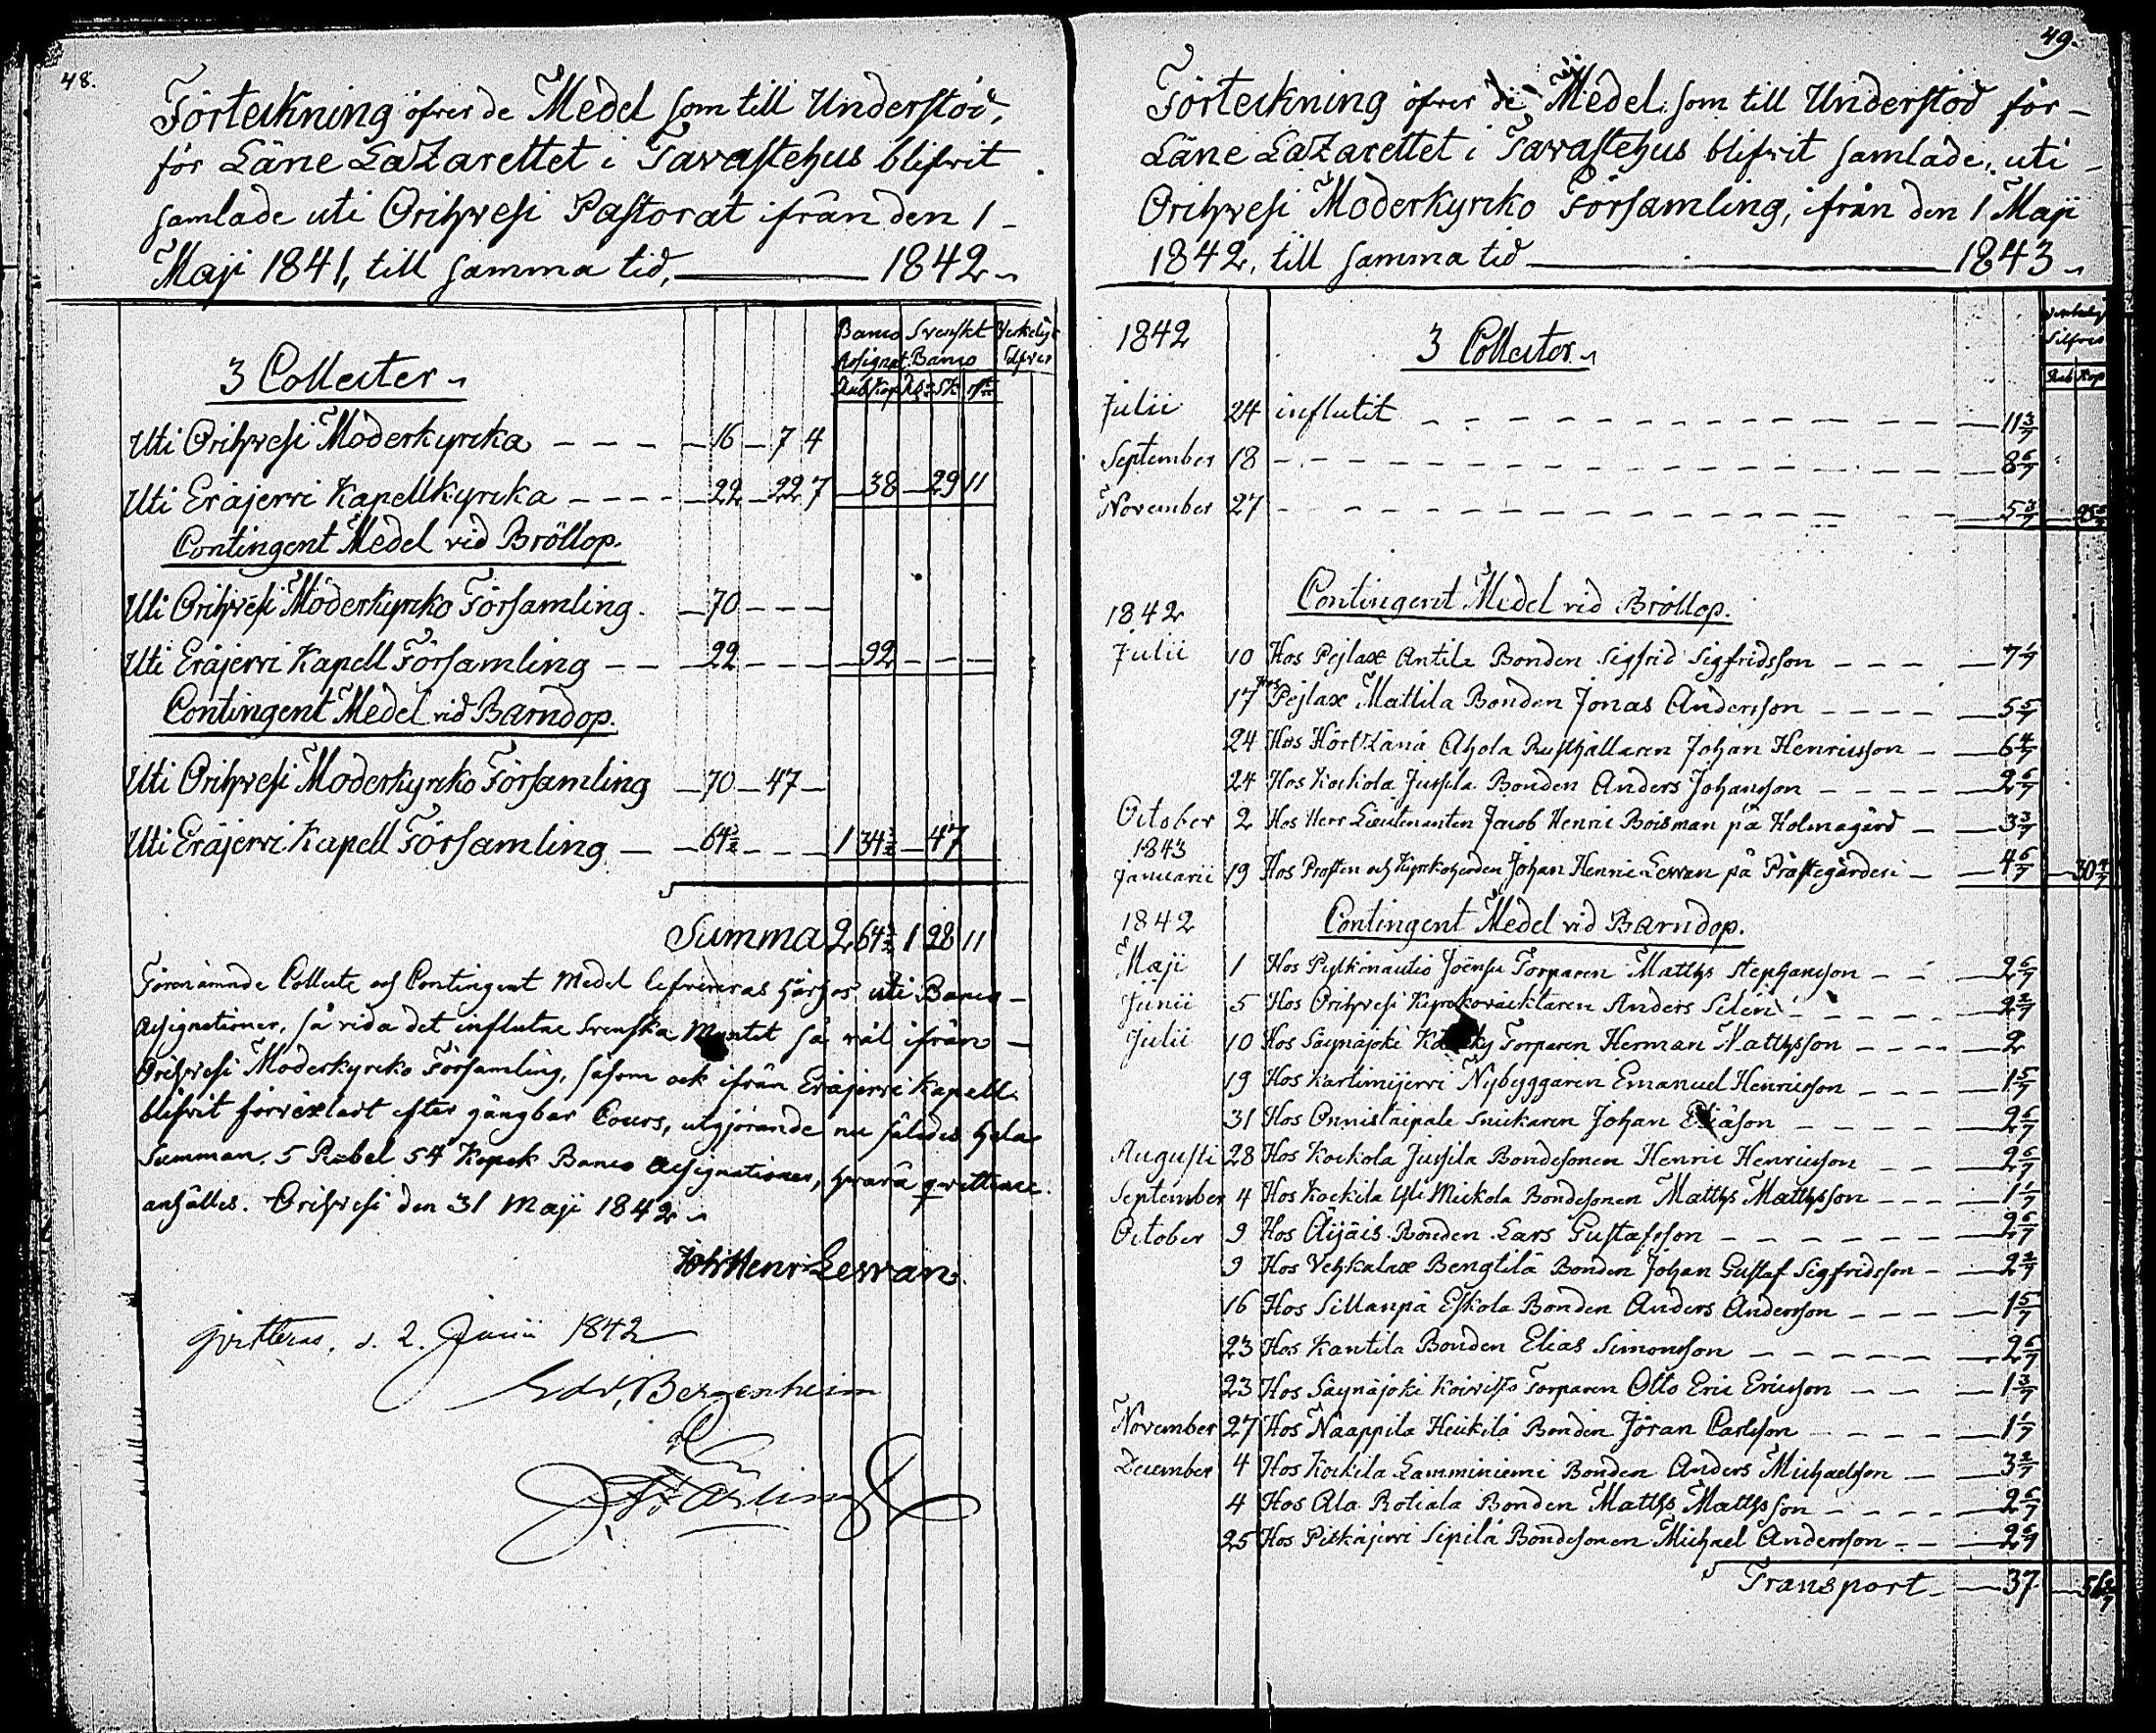 48.
Förteckning öfver de Medel som till Understöd,
för Läne Lazarettet i Tavastehus blifvit
samlade uti Orihvesi Pastorat ifrån den 1
Maji 1841, till samma tid, 1842
Banco Assignat. Svenskt Banco
Rub Kop Rd Sk
3 Collecter
Uti Orihvesi Moderkyrcka — 16 — 7 4
Uti Eräjervi Kapellkyrcka — 22 — 22 7 — 38 — 29 11
Contingent Medel vid Bröllop.
Uti Orihvesi Moderkyrcko Församling. — 70 — — —
Uti Eräjervi Kapell Församling — 22 — — — 92 — — —
Contingent Medel vid Barndop.
Uti Orihvesi Moderkyrcko Församling — 70 — 47 —
Uti Eräjervi Kapell Församling — 64½ — — 1 34½ — 47
Summa 2 64½ 1 28 11
Förenämnde Collecte och Contingent Medel lefvereras härhos uti Banco
Assignationer, så vida det influtne Svenska Myntet så väl ifrån
Orihvesi Moderkyrcko Församling, såsom ock ifrån Eräjervi Kapell
blifvit förvexlart efter gångbar Cours, utgjörande nu således hela
Summan. 5 Rubel 54 Kopek Banco Assignationer, hvarå qvittence
anhålles. Orihvesi den 31 Maji 1842
Joh Henr Levvan
Qvitteras, d. 2. Junii 1842
Edv. Bergenheim
49.
Förteckning öfver de Medel som till Understöd för
Läne Lazarettet i Tavastehus blifvit samlade, uti
Orihvesi Moderkyrcko Församling, ifrån den 1 Maji
1842, till samma tid 1843
Silfver
Rub Kop
1842 3 Collecter
Julii 24 influtit — 11 3/7
September 18 — 8 6/7
November 27 — 5 3/7 — 25 5/7
Contingent Medel vid Bröllop.
1842
Julii 10 Hos Pejlax Antila Bonden Sigfrid Sigfridsson — 7 1/7
17 Hos Pejlax Mattila Bonden Jonas Andersson — 5 5/7
24 Hos Ahola Rusthållaren Johan Henricsson — 6 4/7
24 Hos Kockola Jussila Bonden Anders Johansson — 2 6/7
October 2 Hos Herr Lieutenanten Jacob Henric Boisman på Holmagård — 3 3/7
1843
Januarii 19 Hos Prosten och Kyrckoherden Johan Henric Levvan på Prästegården — 4 6/7 — 30 4/7
1842 Contingent Medel vid Barndop.
Maji 1 Hos Joensu Torparen Matths Stephansson — 2 6/7
Junii 5 Hos Orihvesi Kyrckoväcktaren Anders Silén — 2 2/7
Julii 10 Hos Säynäjoki Torparen Herman Matthsson — 2
19 Hos Karlimijervi Nybyggaren Emanuel Henricsson — 1 5/7
31 Hos Onnistaipale Snickaren Johan Eliasson — 2 6/7
Augusti 28 Hos Kockola Jussila Bondesonen Henric Henricsson — 2 6/7
September 4 Hos Kockila Yli Mickola Bondesonen Matths Matthsson — 1 1/7
October 9 Hos Äijäis Bonden Lars Gustafsson — 2 6/7
9 Hos Vehkalax Bengtilä Bonden Johan Gustaf Sigfridsson — 2 2/7
16 Hos Sillanpä Eskola Bonden Anders Andersson — 1 5/7
23 Hos Kantila Bonden Elias Simonsson — 2 6/7
23 Hos Säynäjoki Koivisto Torparen Otto Eric Ericsson — 1 3/7
November 27 Hos Naappila Heickilä Bonden Jöran Carlsson — 1 1/7
December 4 Hos Kockila Lamminiemi Bonden Anders Michaelsson — 3 2/7
4 Hos Ala Rotiala Bonden Matths Matthsson — 2 6/7
25 Hos Pitkäjervi Sipilä Bondesonen Michael Andersson — 2 6/7
Transport — 37 — 56 2/7